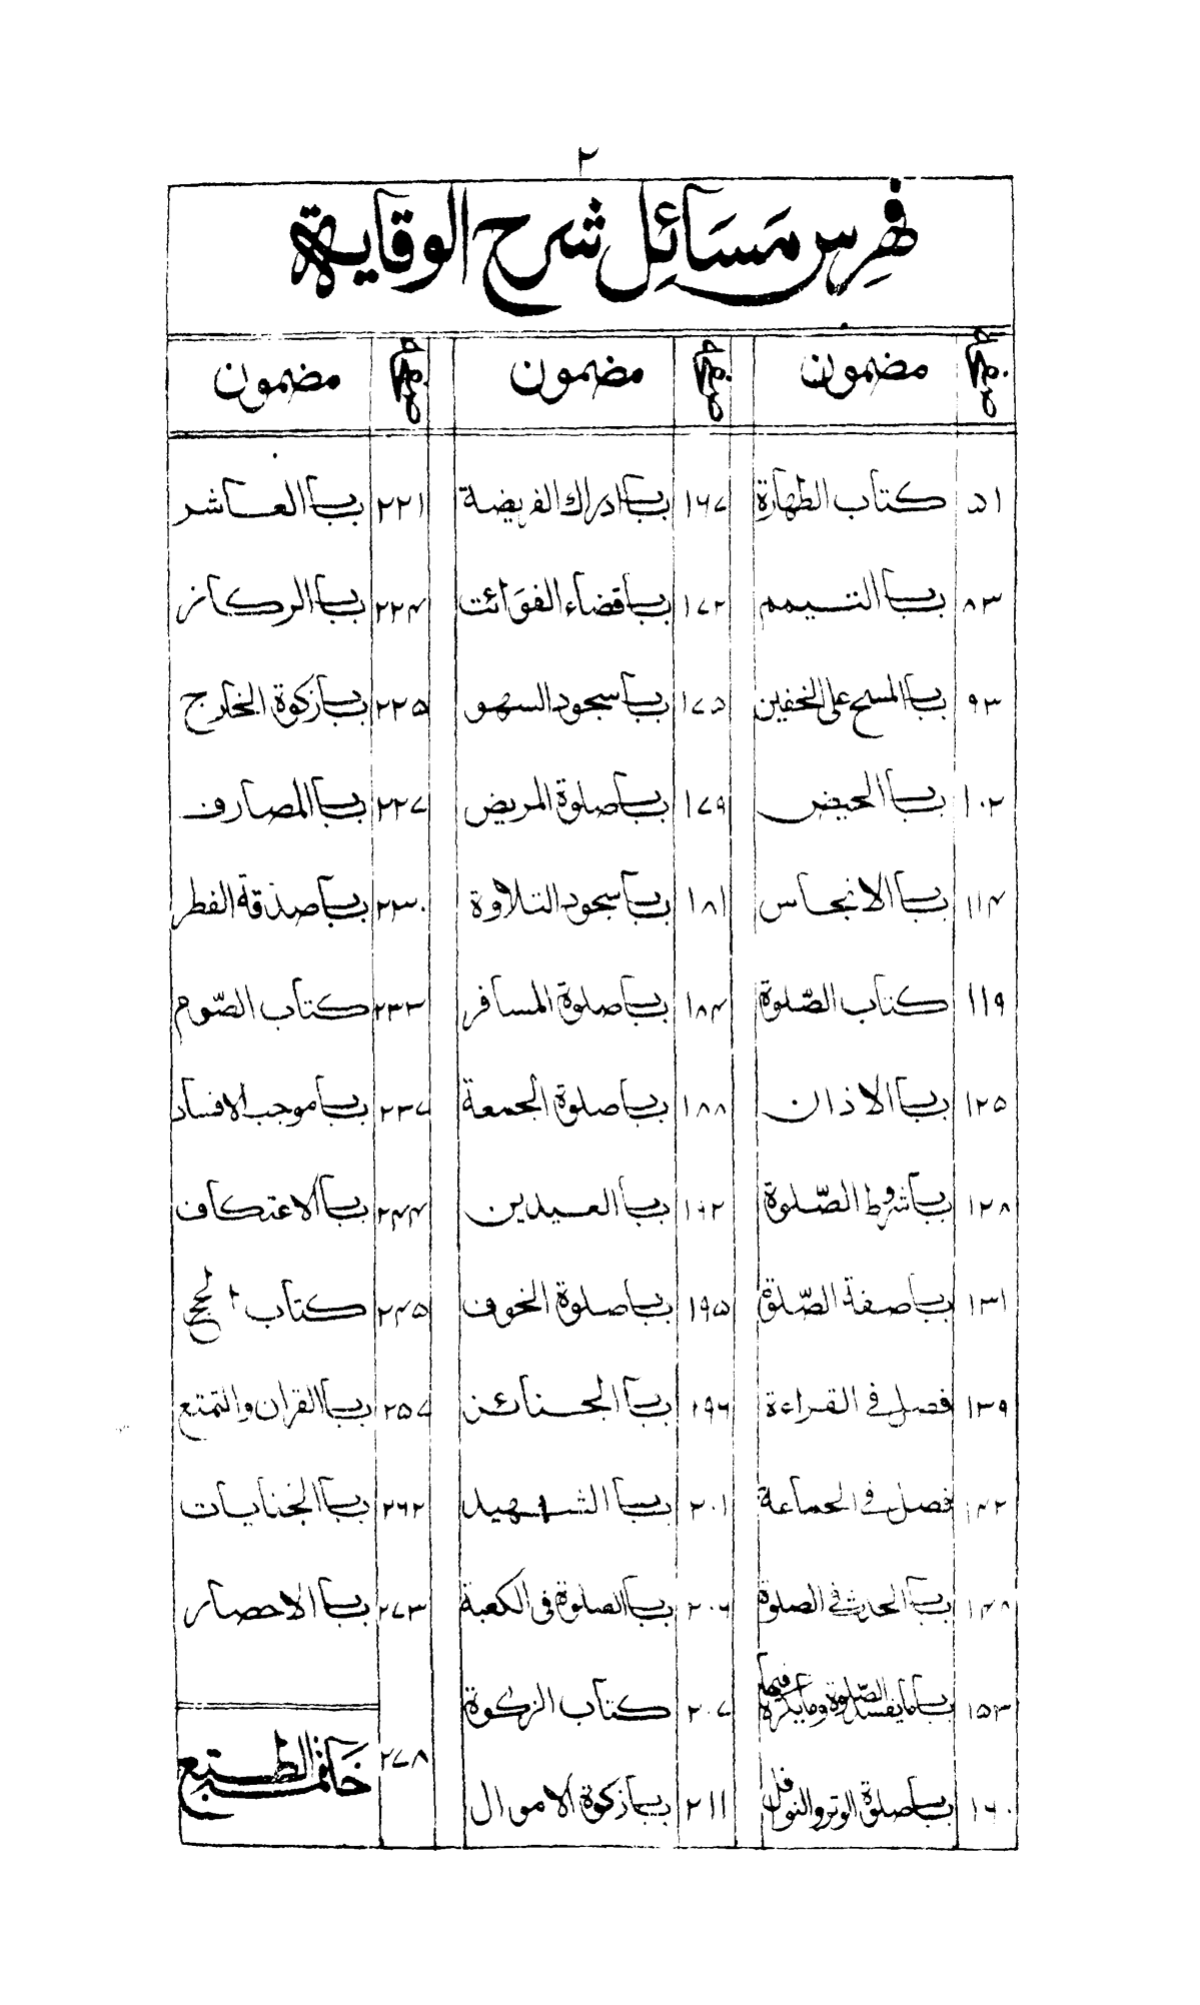 ۲
فهرس مَسَائِل شرح الوقاية
صفحه مضمون صفحه مضمون صفحه مضمون
۵۱ كتاب الطهارة ۱۶۷ باب ادراك الفريضة ۲۲۱ باب العاشر
۸۳ باب التيمم ۱۷۲ باب قضاء الفوائت ۲۲۴ باب الركاز
۹۳ باب المسح على الخفين ۱۷۵ باب سجود السهو ۲۲۵ باب زكوة الخارج
۱۰۲ باب الحيض ۱۷۹ باب صلوة المريض ۲۲۷ باب المصارف
۱۱۴ باب الانجاس ۱۸۱ باب سجود التلاوة ۲۳۰ باب صدقة الفطر
۱۱۹ كتاب الصّلوة ۱۸۴ باب صلوة المسافر ۲۳۳ كتاب الصّوم
۱۲۵ باب الاذان ۱۸۸ باب صلوة الجمعة ۲۳۷ باب موجب الافساد
۱۲۸ باب شروط الصّلوة ۱۹۲ باب العيدين ۲۴۴ باب الاعتكاف
۱۳۱ باب صفة الصّلوة ۱۹۵ باب صلوة الخوف ۲۴۵ كتاب الحج
۱۳۹ فصل في القراءة ۱۹۶ باب الجنائز ۲۵۷ باب القران والتمتع
۱۴۲ فصل في الجماعة ۲۰۱ باب الشهيد ۲۶۲ باب الجنايات
۱۴۸ باب الحدث في الصلوة ۲۰۶ باب الصلوة فى الكعبة ۲۷۳ باب الاحصار
۱۵۳ باب ما يفسد الصّلوة وما يكره فيها ۲۰۷ كتاب الزكوة
۱۶۰ باب صلوة الوتر والنوافل ۲۱۱ باب زكوة الاموال ۲۷۸ خاتمة الطبع